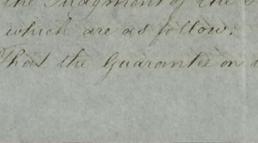 the Judgment of the
which are as follow:
That the Guarantee on